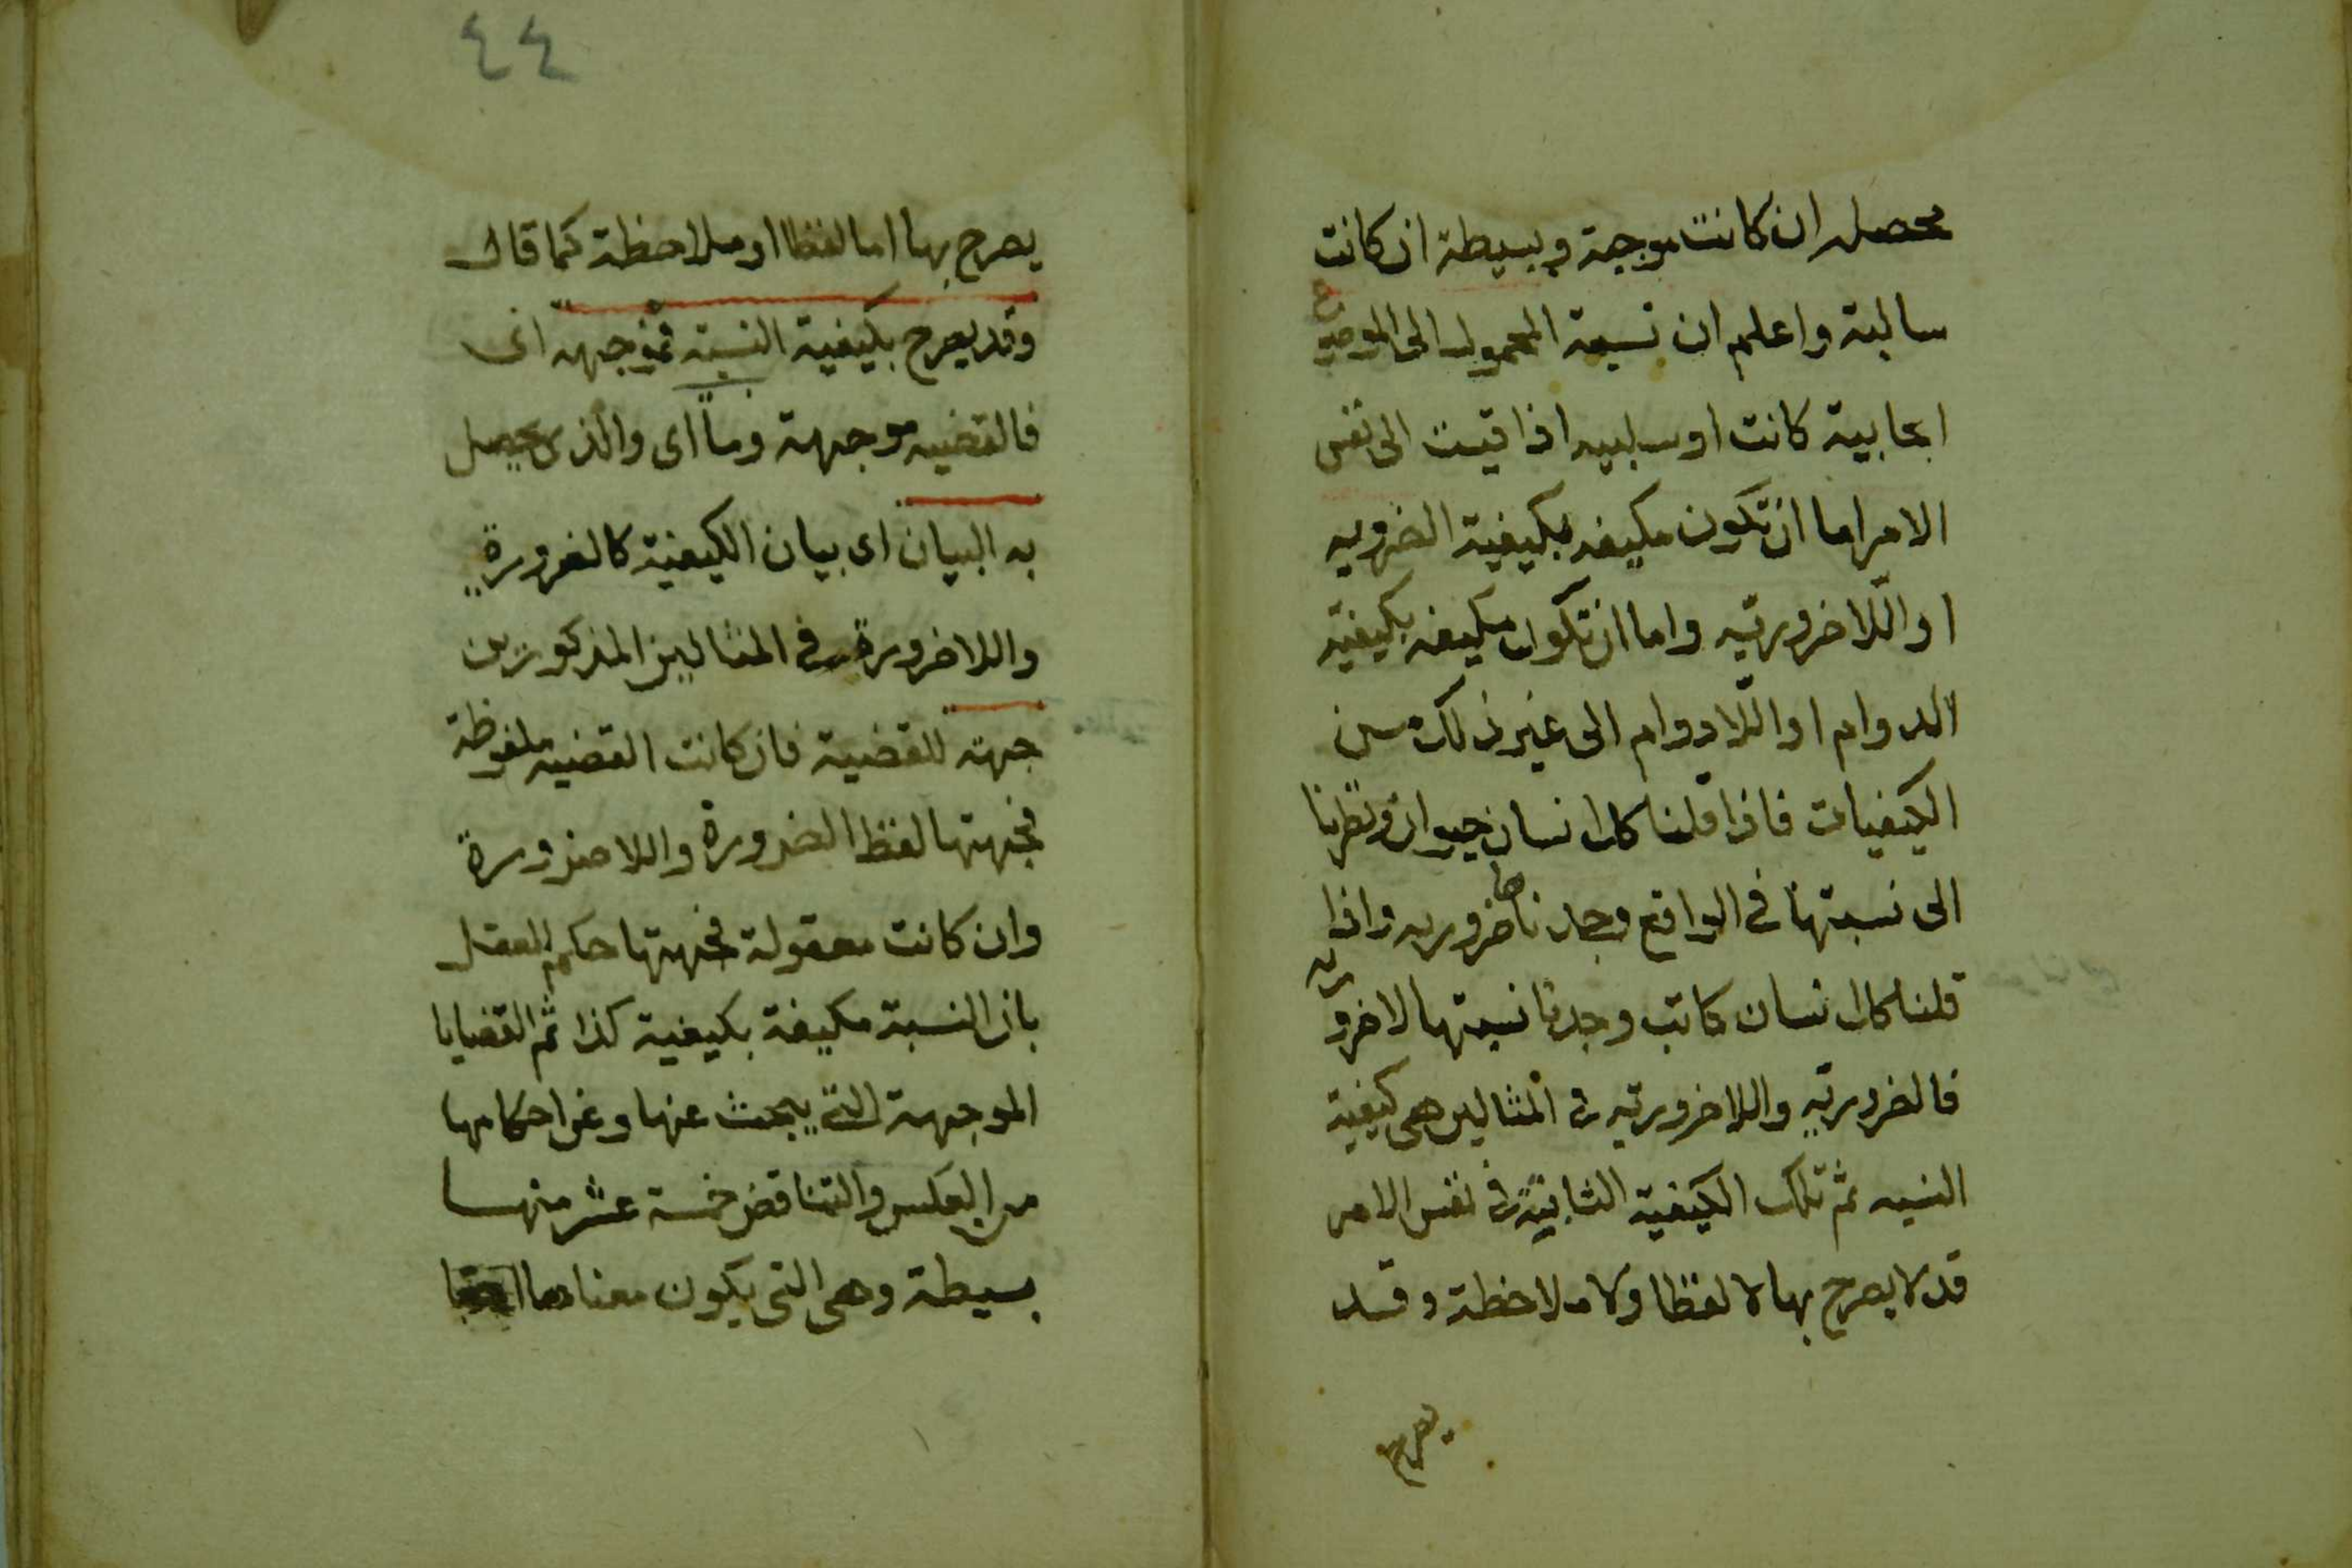 محصلة ان كانت موجبة وبسيطة ان كانت
سالبة واعلم ان نسبة المحمول الى الموضوع
ايجابية كانت او سلبيه اذا قيست الى نفس
الامر اما ان تكون مكيفه بكيفية الضروريه
او اللاضروريه واما ان تكون مكيفه بكيفية
الدوام او اللادوام الى غير ذلك من
الكيفيات فاذا قلنا كل انسان حيوان ونظرنا
الى نسبتها في الواقع وجدناها ضروريه واذا
قلنا كل انسان كاتب وجدنا نسبتها لاضرورية
فالضرورية واللاضرورية في المثالين هي كيفية
النسبه ثم تلك الكيفية الثابتة في نفس الامر
قد لا يصرح بها لا لفظا ولا ملاحظة وقد
يصرح
٤٤
يصرح بها اما لفظا او ملاحظة كما قال
وقد يصرح بكيفية النسبة فموجهه اى
فالقضيه موجهة وما اى والذى يحصل
به البيان اى بيان الكيفية كالضرورة
واللاضرورة في المثالين المذكورين
جهة للقضية فان كانت القضيه ملفوظة
فجهتها لفظ الضرورة واللاضرورة
وان كانت معقولة فجهتها حكم العقل
بان النسبة مكيفة بكيفية كذا ثم القضايا
الموجهة التي يبحث عنها وعن احكامها
من العكس والتناقض خمسة عشر منها
بسيطة وهى التى يكون معناها